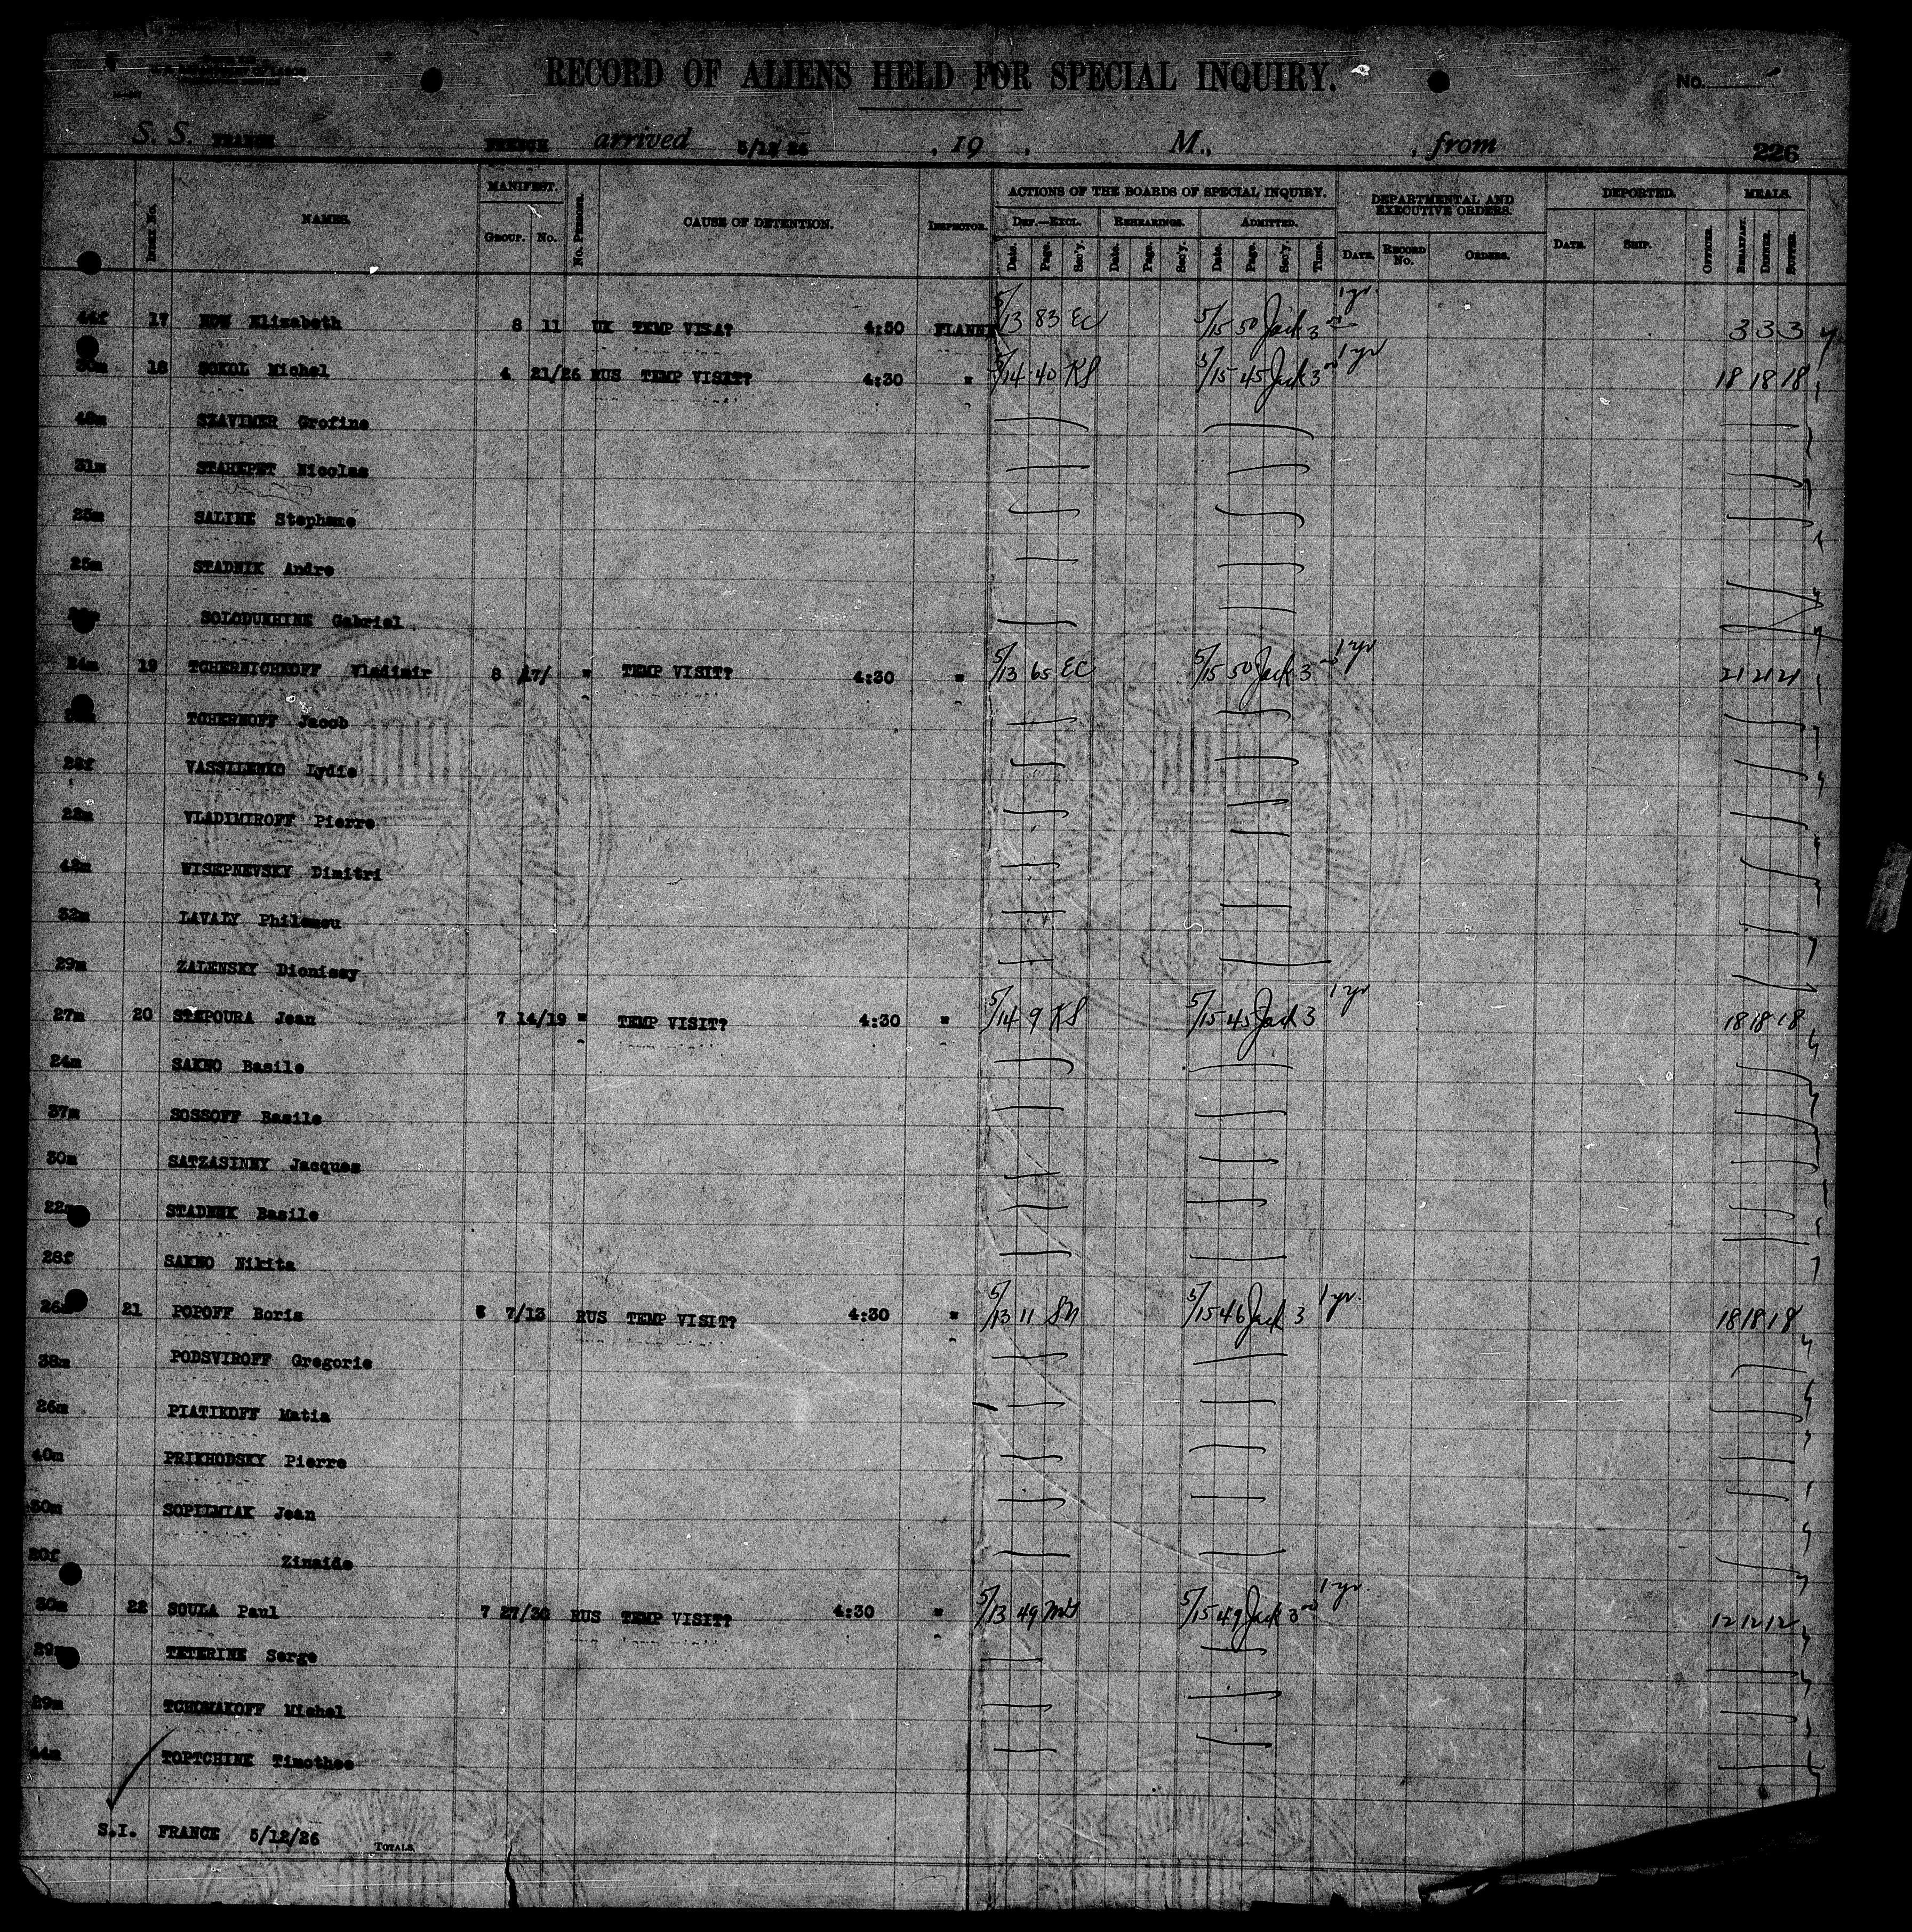 RECORD OF ALIENS HELD FOR SPECIAL INQUIRY.
No.
S. S. FRANCE FRENCH arrived 5/12 26 , 19 , M., , from 226
Index No. NAMES. MANIFEST. Group. No. No. Persons. CAUSE OF DETENTION. Inspector. ACTIONS OF THE BOARDS OF SPECIAL INQUIRY. Def.—Excl. Date. Page. Sec'y. Rehearings. Date. Page. Sec'y. Admitted. Date. Page. Sec'y. Time. DEPARTMENTAL AND EXECUTIVE ORDERS. Date. Record No. Orders. DEPORTED. Date. Ship. Officer. MEALS. Breakfast. Dinner. Supper.
44f 17 Elizabeth 8 11 UK TEMP VISA? 4:30 5/13 83 EC 5/15 50 Jack 3 1 yr. 3 3 3
18 SOKOL Michel 4 21/26 RUS TEMP VISIT? 4:30 " 5/14 40 KS 5/15 45 Jack 3 1 yr 18 18 18
SZAVIMER Grofine
31m STAHEPET Nicolas
25m SALINE Stephane
25m STADNIK Andre
SOLODUKHINE Gabriel
24m 19 TCHERNICHKOFF Vladimir 8 17/ " TEMP VISIT? 4:30 " 5/13 65 EC 5/15 50 Jack 3 1 yr 21 21 21
TCHERKOFF Jacob
28f VASSILENKO Lydie
22m VLADIMIROFF Pierre
42m WISEPNEVSKY Dimitri
32m LAVALY Philemou
29m ZALENSKY Dionissy
27m 20 STEPOURA Jean 7 14/19 " TEMP VISIT? 4:30 " 5/14 9 KS 5/15 45 Jack 3 1 yr 18 18 18
24m SAKNO Basile
37m SOSSOFF Basile
30m SATZASINNY Jacques
22m STADNEK Basile
28f SAKNO Nikita
26m 21 POPOFF Boris 7/13 RUS TEMP VISIT? 4:30 " 5/13 11 SN 5/15 46 Jack 3 1 yr. 18 18 18
38m PODSVIROFF Gregorie
26m PIATIKOFF Matia
40m PRIKHODSKY Pierre
30m SOPILMIAK Jean
20f Zinaide
30m 22 SOULA Paul 7 27/30 RUS TEMP VISIT? 4:30 " 5/13 49 5/15 49 Jack 3 1 yr. 12 12 12
29m TETERINE Serge
29m TCHOMAKOFF Michel
44m TOPTCHINE Timothee
S.I. FRANCE 5/12/26 Totals